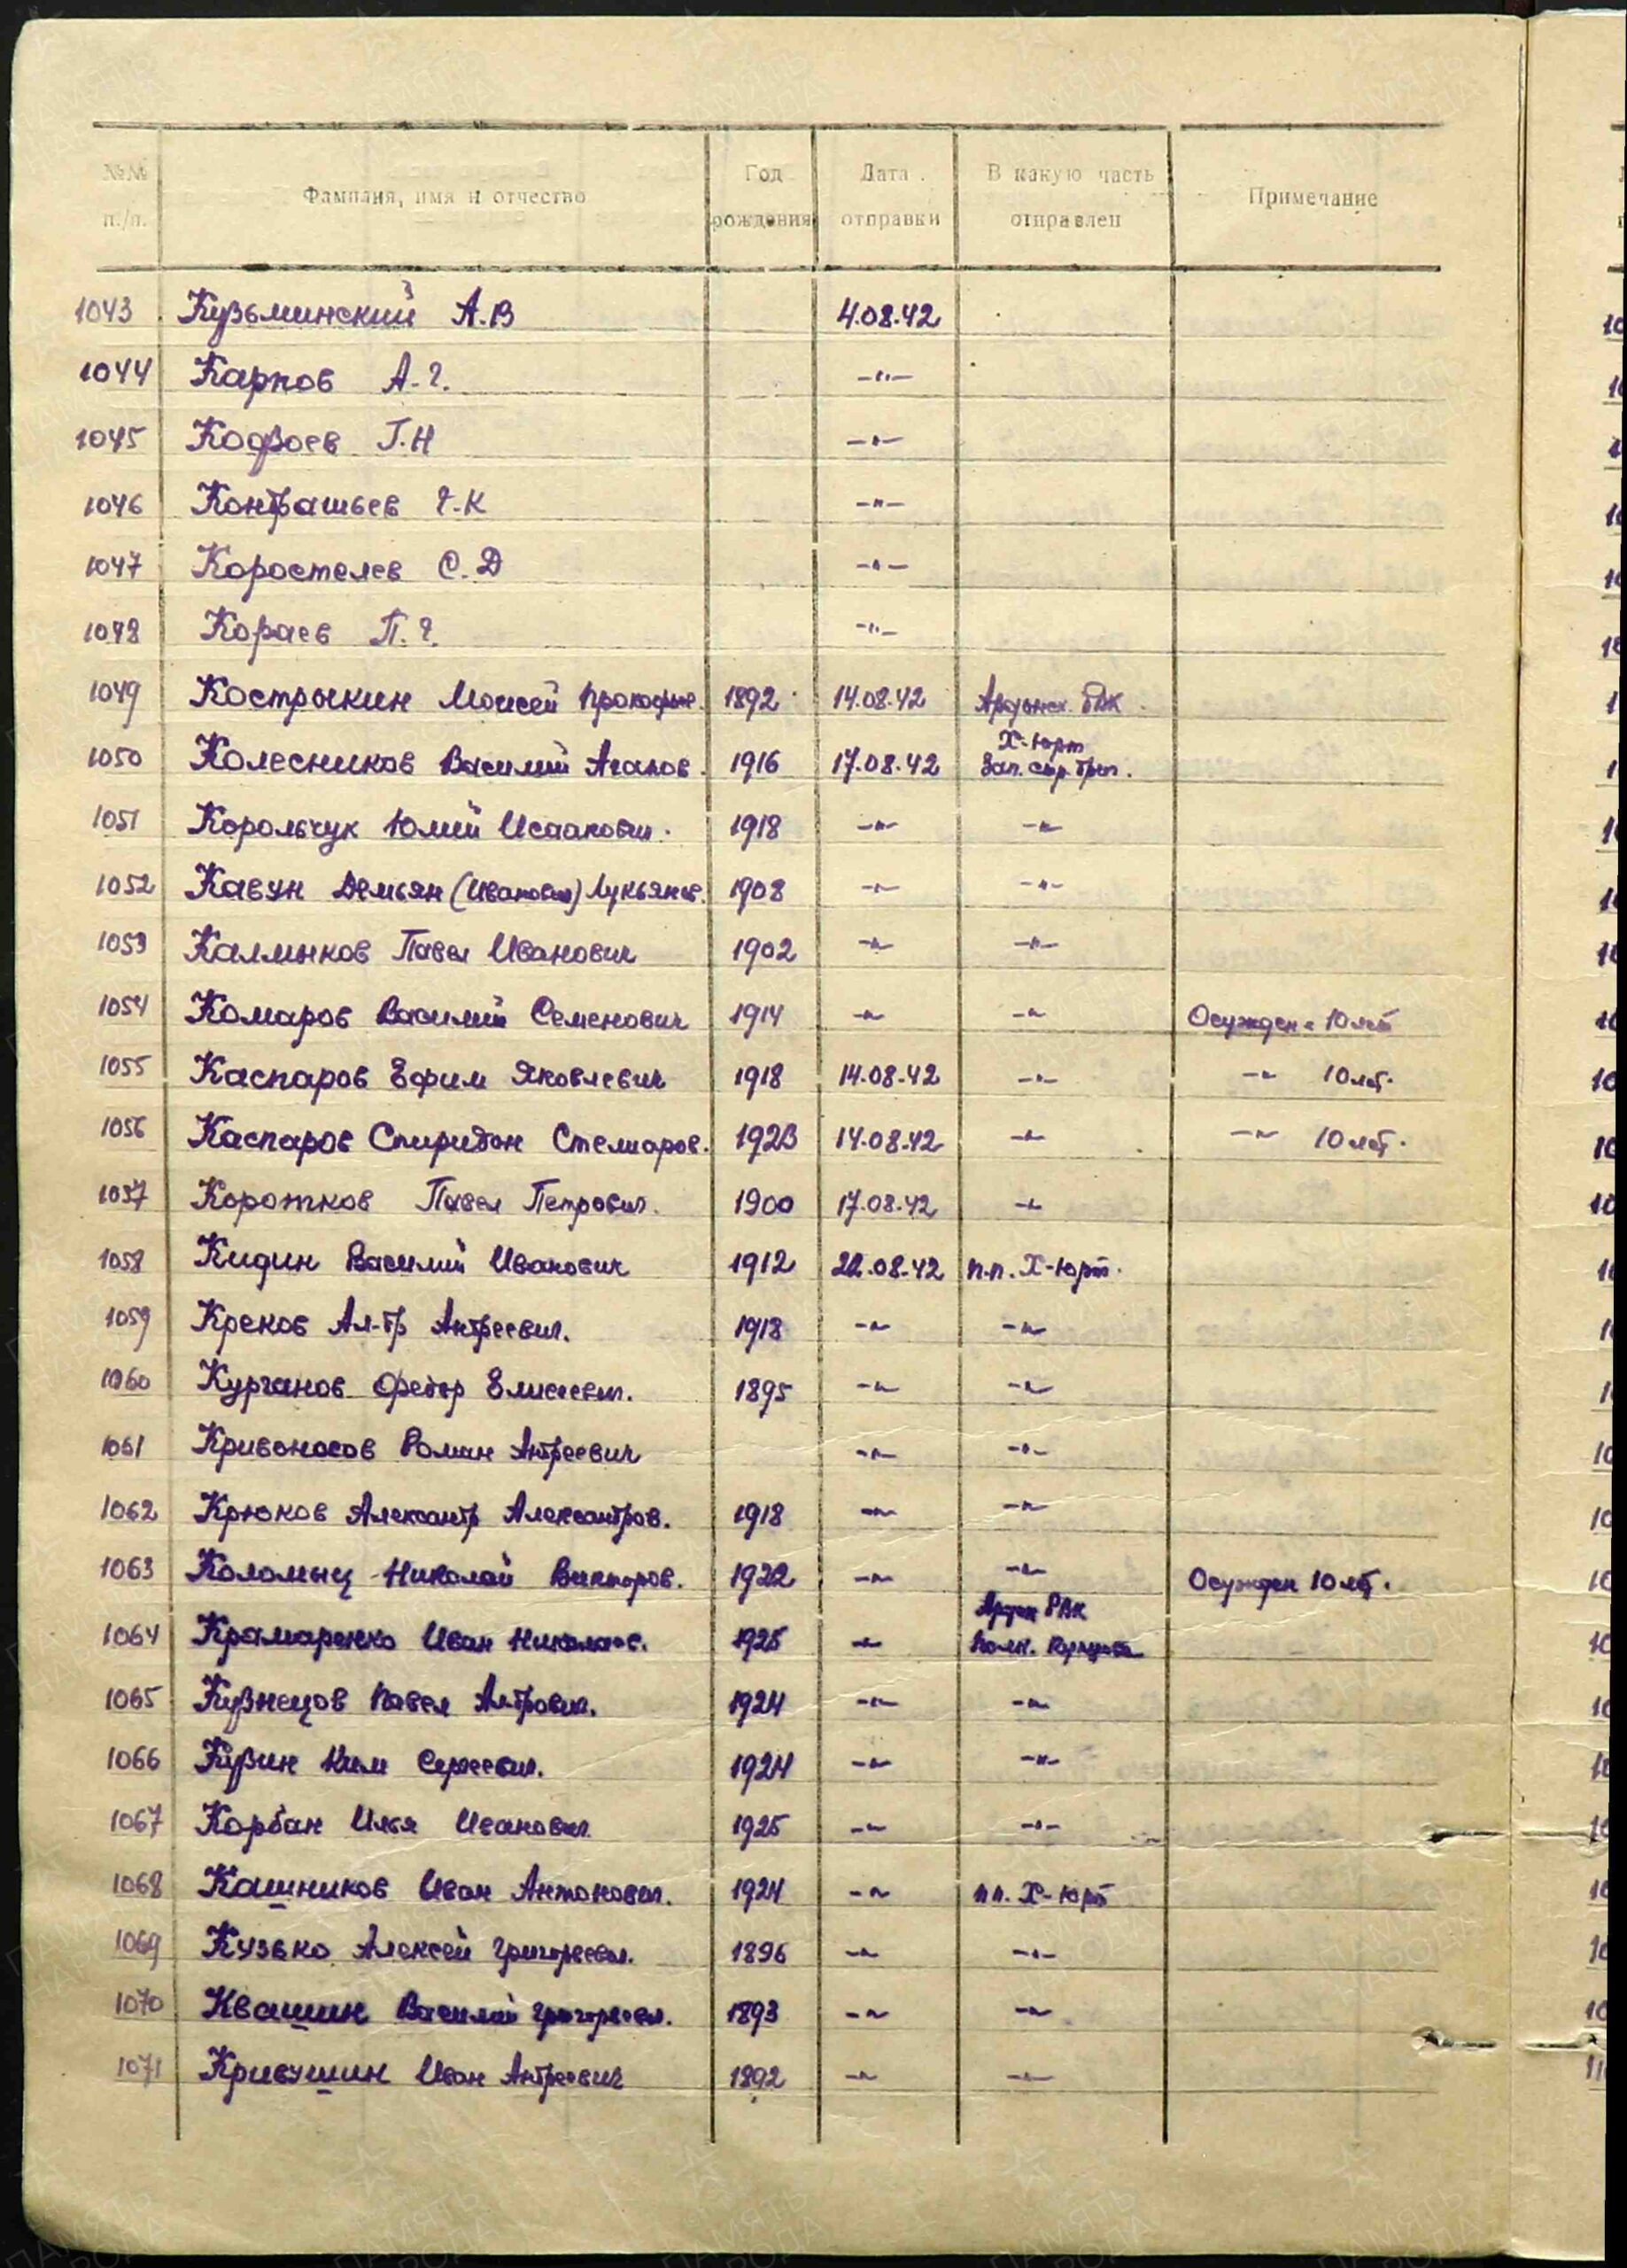 №№ п./п. Фамилия, имя и отчество Год рождения Дата отправки В какую часть отправлен Примечание
1043 Кузьминский А.В 4.08.42
1044 Карпов А.Г. -"-
1045 Кодзоев Г.Н -"-
1046 Кондрашьев Г.К -"-
1047 Коростелев С.Д -"-
1048 Кораев П.Г. -"-
1049 Кострыкин Моисей Прокофье. 1892 14.08.42 Ардонск. РВК
1050 Колесников Василий Агапов. 1916 17.08.42 Х-Юрт Зап. стр. бриг.
1051 Корольчук Юлий Исаакович. 1918 -"- -"-
1052 Кавун Демьян (Иванович) Лукьянов. 1908 -"- -"-
1053 Калмыков Павел Иванович 1902 -"- -"-
1054 Комаров Василий Семенович 1914 -"- -"- Осужден 10 лет
1055 Каспаров Ефим Яковлевич 1918 14.08.42 -"- -"- 10 лет.
1056 Каспаров Спиридон 1923 14.08.42 -"- -"- 10 лет.
1057 Коротков Павел Петрович. 1900 17.08.42 -"-
1058 Кидин Василий Иванович 1912 22.08.42 п.п. Х-Юрт.
1059 Креков Ал-др Андреевич. 1918 -"- -"-
1060 Курганов Федор Елисеевич. 1895 -"- -"-
1061 Кривоносов Роман Андреевич -"- -"-
1062 Крюков Александр Александров. 1918 -"- -"-
1063 Коломыц Николай Викторов. 1922 -"- -"- Осужден 10 лет.
1064 Крамаренко Иван Николаев. 1925 -"- Ардон РВК Полк.
1065 Кузнецов Павел 1924 -"- -"-
1066 Кузин Ким Сергеевич. 1924 -"- -"-
1067 Корбан Илья Иванович 1925 -"- -"-
1068 Кашников Иван Антонович. 1924 -"- п.п. Х-Юрт
1069 Кузько Алексей Григорьевич. 1896 -"- -"-
1070 Квашин Василий Григорьевич. 1893 -"- -"-
1071 Кривушин Иван Андреевич 1892 -"- -"-